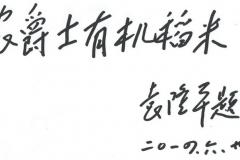 爵士有机稻米
袁隆平题
二〇一四.六.廿